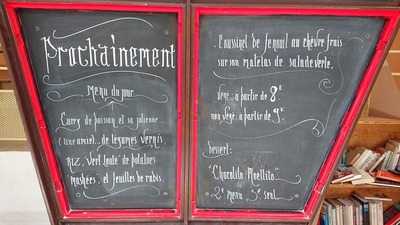 Prochainement
Menu du jour
Curry de poisson et sa julienne
de légumes vernis
Riz, vert de patates
maskées, et feuilles de radis.
Coussinet de fenouil au chèvre frais
sur son matelas de salade verte.
végé. à partir de 8€
non végé. à partir de 9€.
Dessert:
"Chocolito Moellito"
2€ menu 3€ seul